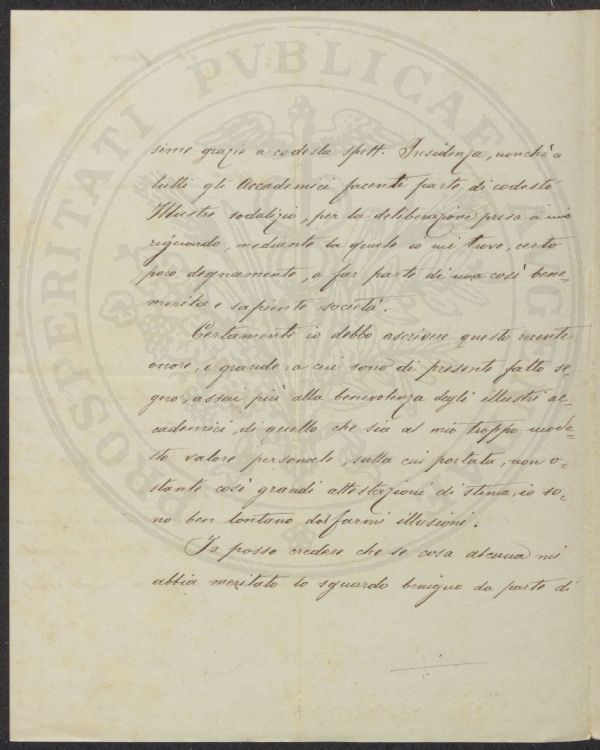 sime grazie a codesta spett. Presidenza, nonchè a
tutti gli Accademici facenti parte di codesto
Illustre sodalizio, per la deliberazione presa a mio
riguardo, mediante la quale io mi trovo, certo
poco degnamente, a far parte di una così bene-
merita e sapiente società.
Certamente io debbo ascrivere questo recente
onore, e grande, a cui sono di presente fatto se-
gno, assai più alla benevolenza degli illustri ac-
cademici, di quello che sia al mio troppo mode-
sto valore personale, sulla cui portata, non o-
stante così grandi attestazioni di stima, io so-
no ben lontano dal farmi illusioni.
Io posso credere che se cosa alcuna mi
abbia meritato lo sguardo benigno da parte di
PROSPERITATI PVBLICAE AVGENDAE